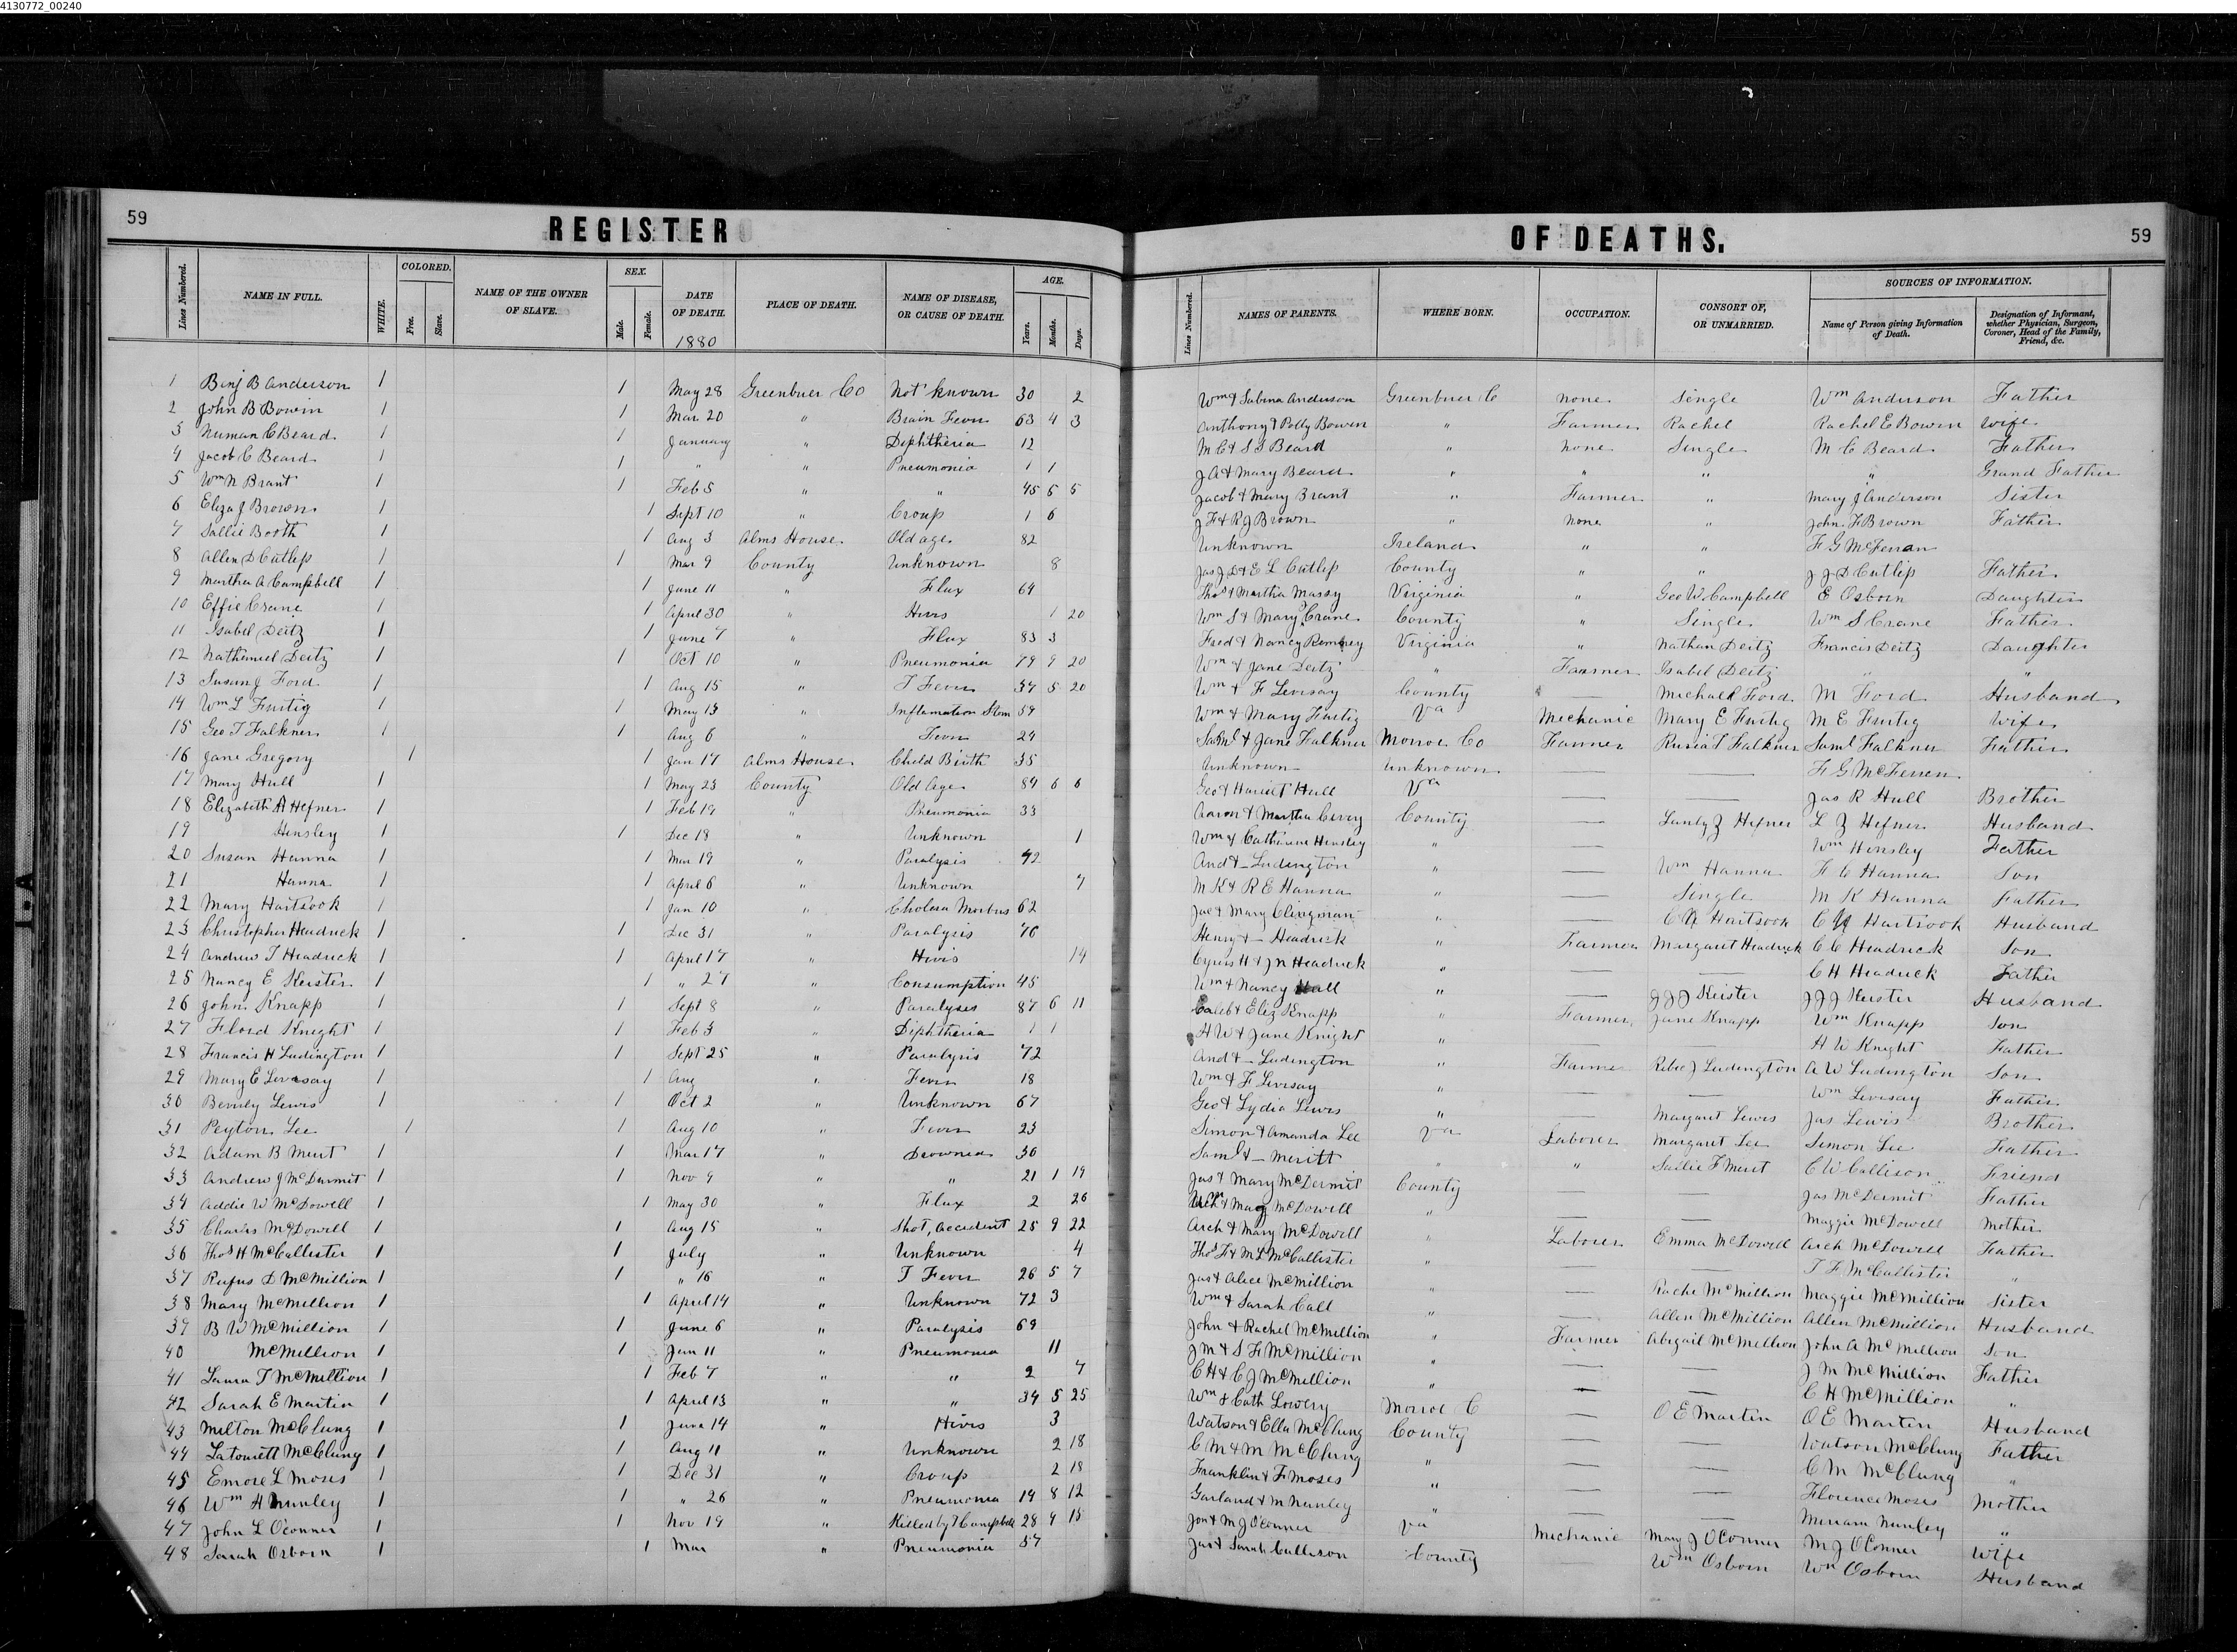 4130772_00240
59 REGISTER OF DEATHS. 59
Lines Numbered. NAME IN FULL. WHITE. COLORED. Free. Slave. NAME OF THE OWNER OF SLAVE. SEX. Male. Female. DATE OF DEATH. 1880 PLACE OF DEATH. NAME OF DISEASE, OR CAUSE OF DEATH. AGE. Years. Months. Days. Lines Numbered. NAMES OF PARENTS. WHERE BORN. OCCUPATION. CONSORT OF, OR UNMARRIED. SOURCES OF INFORMATION. Name of Person giving Information of Death. Designation of Informant, whether Physician, Surgeon, Coroner, Head of the Family, Friend, &c.
1 Benj B Anderson 1 1 May 28 Greenbrier Co Not known 30 2 Wm & Sabina Anderson Greenbrier C none Single Wm Anderson Father
2 John B Bowin 1 1 Mar 20 " Brain Fever 63 4 3 Anthony & Polly Bowen " Farmer Rachel Rachel E Bowen Wife
3 Numan C Beard 1 1 January " Diphtheria 12 M C & S S Beard " none Single M C Beard Father
4 Jacob C Beard 1 1 " " Pneumonia 1 1 J A & Mary Beard " " " " Grand Father
5 Wm N Brant 1 1 Feb 5 " " 45 5 5 Jacob & Mary Brant " Farmer " Mary J Anderson Sister
6 Eliza J Brown 1 1 Sept 10 " Croup 1 6 J F & R J Brown " none " John F Brown Father
7 Sallie Booth 1 1 Aug 3 Alms House Old age 82 Unknown Ireland " " F G McFerran
8 Allen D Cutlip 1 1 Mar 9 County Unknown 8 Jas J D & E L Cutlip County " " J J D Cutlip Father
9 Martha A Campbell 1 1 June 11 " Flux 64 Thos & Martha Massy Virginia " Geo W Campbell E Osborn Daughter
10 Effie Crane 1 1 April 30 " Hives 1 20 Wm S & Mary Crane County " Single Wm S Crane Father
11 Isabel Deitz 1 1 June 7 " Flux 83 3 Fred & Nancy Romsey Virginia " Nathan Deitz Francis Deitz Daughter
12 Nathaniel Deitz 1 1 Oct 10 " Pneumonia 79 9 20 Wm & Jane Deitz " Farmer Isabel Deitz " "
13 Susan J Ford 1 1 Aug 15 " T Fever 37 5 20 Wm & F Levisay County Michael Ford M Ford Husband
14 Wm L Furtig 1 1 May 13 " Inflamation Stom 59 Wm & Mary Furtig Va Mechanic Mary E Furtig M E Furtig Wife
15 Geo T Falkner 1 1 Aug 6 " Fever 24 Saml & Jane Falkner Monroe Co Farmer Rusia T Falkner Saml Falkner Father
16 Jane Gregory 1 1 Jan 17 Alms House Child Birth 35 Unknown Unknown — — F G McFerren
17 Mary Hull 1 1 May 23 County Old Age 84 6 6 Geo & Hariet Hull Va — — Jas R Hull Brother
18 Elizabeth A Hefner 1 1 Feb 19 " Pneumonia 33 Aaron & Martha County — L Z Hefner Husband
19 Hensley 1 1 Dec 18 " Unknown 1 Wm & Catharine Hensley " — Wm Hensley Father
20 Susan Hanna 1 1 Mar 19 " Paralysis 72 And & — Ludington " — Wm Hanna F C Hanna Son
21 Hanna 1 1 April 6 " Unknown 7 M K & R E Hanna " — Single M K Hanna Father
22 Mary Hartsook 1 1 Jan 10 " Cholera Morbus 62 Jac & Mary Clingman " — Hartsook Hartsook Husband
23 Christopher Headrick 1 1 Dec 31 " Paralysis 76 Henry & — Headrick " Farmer Margaret Headrick C C Headrick Son
24 Andrew T Headrick 1 1 April 17 " Hives 14 Cyrus H & J N Headrick " — — C H Headrick Father
25 Nancy E Keister 1 1 " 27 " Consumption 45 Wm & Nancy Hall " — J J J Keister J J J Keister Husband
26 John Knapp 1 1 Sept 8 " Paralyses 87 6 11 Caleb & Eliz Knapp " Farmer Jane Knapp Wm Knapp Son
27 Floid Knight 1 1 Feb 3 " Diphtheria 1 1 H W & Jane Knight " — — H W Knight Father
28 Francis H Ludington 1 1 Sept 25 " Paralysis 72 And & — Ludington " Farmer Ludington A W Ludington Son
29 Mary E Levisay 1 1 Aug " Fever 18 Wm & F Levisay " — — Wm Levisay Father
30 Beverly Lewis 1 1 Oct 2 " Unknown 67 Geo & Lydia Lewis " — Margaret Lewis Jas Lewis Brother
31 Peyton Lee 1 1 Aug 10 " Fever 23 Simon & Amanda Lee Va Laborer Margaret Lee Simon Lee Father
32 Adam B Merit 1 1 Mar 17 " Drowned 36 Saml & — Meritt " " Sallie F Merit C W Callison Friend
33 Andrew J McDermit 1 1 Nov 9 " " 21 1 19 Jas & Mary McDermit County — — Jas McDermit Father
34 Addie W McDowell 1 1 May 30 " Flux 2 26 McDowell " — — Maggie McDowell Mother
35 Charles McDowell 1 1 Aug 15 " Shot, accident 25 9 22 Arch & Mary McDowell " Laborer Emma McDowell Arch McDowell Father
36 Thos H McCallister 1 1 July " Unknown 4 Thos F & M L McCallister " — — T F McCallister "
37 Rufus D McMillion 1 1 " 16 " T Fever 26 5 7 Jas & Alice McMillion " — Rache McMillion Maggie McMillion Sister
38 Mary McMillion 1 1 April 14 " Unknown 72 3 Wm & Sarah Call " — Allen McMillion Allen McMillion Husband
39 B W McMillion 1 1 June 6 " Paralysis 69 John & Rachel McMillion " Farmer Abigail McMillion John A McMillion Son
40 McMillion 1 1 Jan 11 " Pneumonia 11 J M & S F McMillion " — — J M McMillion Father
41 Laura T McMillion 1 1 Feb 7 " " 2 7 C H & C J McMillion " — — C H McMillion "
42 Sarah E Martin 1 1 April 13 " " 34 5 25 Wm & Cath Lowery Monroe C — O E Martin O E Martin Husband
43 Milton McClung 1 1 June 14 " Hives 3 Watson & Ella McClung County — — Watson McClung Father
44 Latourett McClung 1 1 Aug 11 " Unknown 2 18 C M & M McClung " — — C M McClung "
45 Emore L Moses 1 1 Dec 31 " Croup 2 18 Franklin & F Moses " — — Florence Moses Mother
46 Wm H Nunley 1 1 " 26 " Pneumonia 19 8 12 Garland & M Nunley " — — Meriam Nunley "
47 John L O'Conner 1 1 Nov 19 " Killed by Campbell 28 9 15 Jon & M J O'Conner Va Mechanic Mary J OConner M J OConner Wife
48 Sarah Osborn 1 1 Mar " Pneumonia 57 Jas & Sarah Callison County — Wm Osborn Wm Osborn Husband